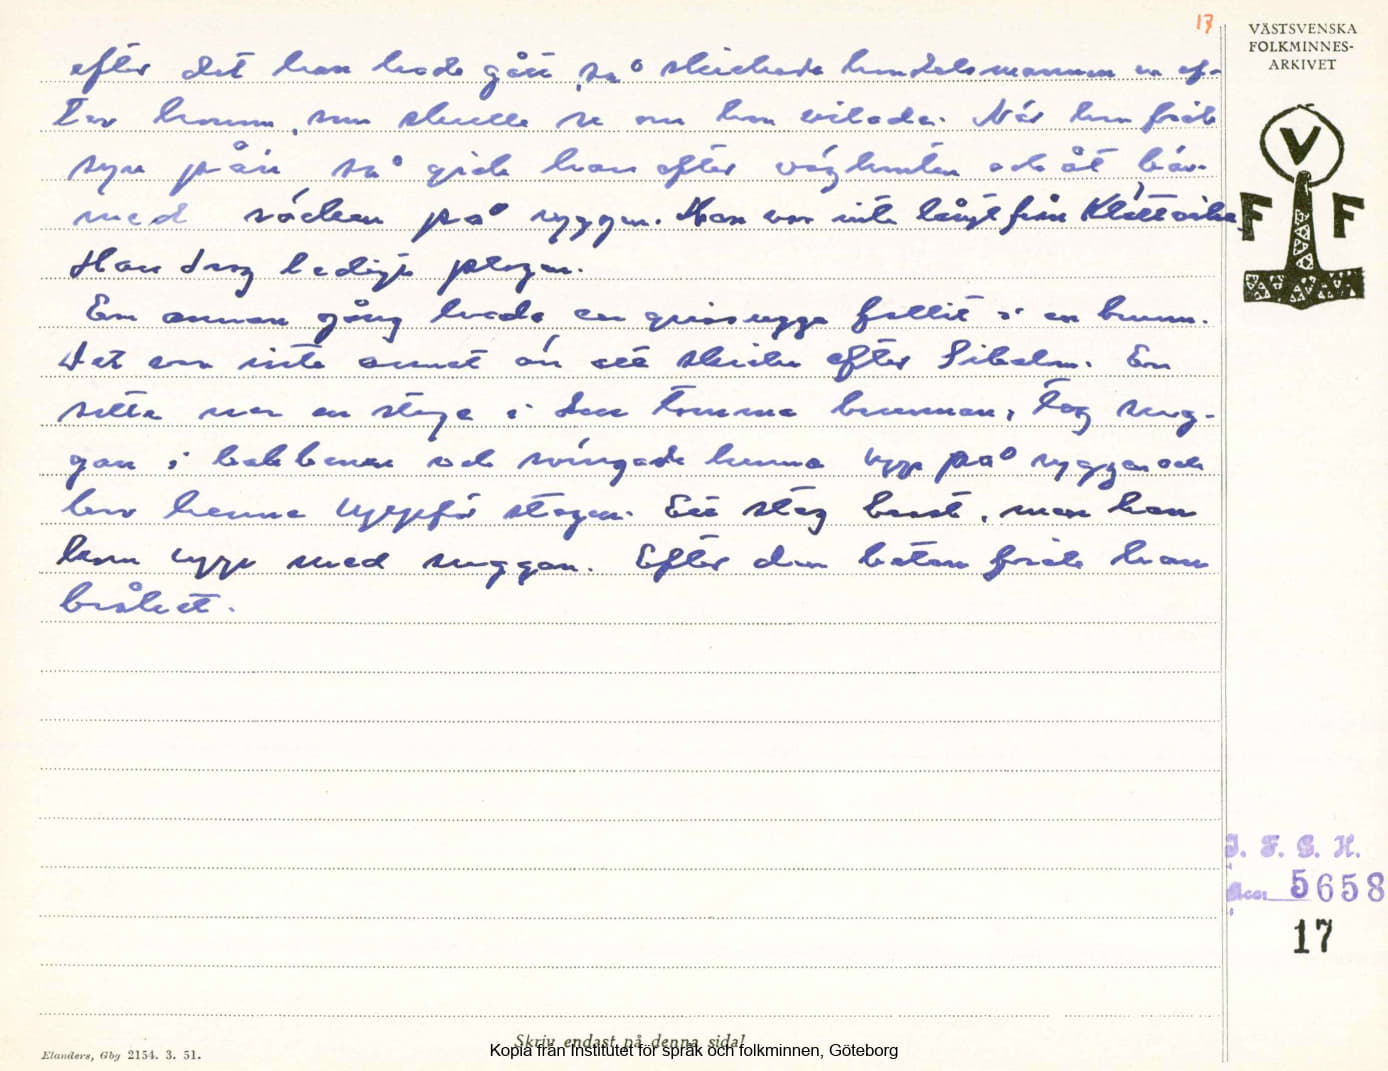 17
VÄSTSVENSKA
FOLKMINNES-
ARKIVET
efter det han hade gått, så skickade handelsmannen en ef-
ter honom, som skulle se om han vilade. När han fick
syn på'n så gick han efter vägkanten och åt bär
med säcken på ryggen. Han var inte långt från
Han drog ledigt plogen.
En annan gång hade en grissugga fallit i en brunn.
Det var inte annat än att skicka efter En
sätta ner en stege i den tomma brunnen, tog sug-
gan i bakbenen och svingade henne upp på ryggen och
bar henne uppför stegen. Ett steg brast, men han
kom upp med suggan. Efter den betan fick han
bråket.
V
F F
I. F. G. H.
Acc. 5658
17
Skriv endast på denna sida!
Elanders, Gbg 2154. 3. 51.
Kopia från Institutet för språk och folkminnen, Göteborg